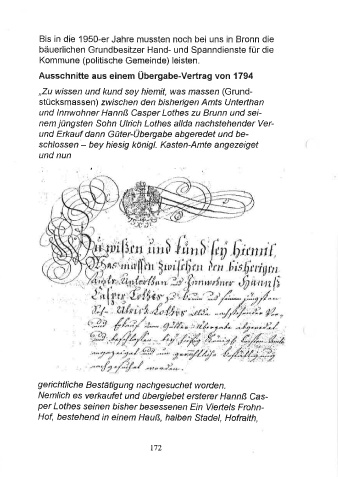 Bis in die 1950-er Jahre mussten noch bei uns in Bronn die
bäuerlichen Grundbesitzer Hand- und Spanndienste für die
Kommune (politische Gemeinde) leisten.
Ausschnitte aus einem Übergabe-Vertrag von 1794
„Zu wissen und kund sey hiemit, was massen (Grund-
stücksmassen) zwischen den bisherigen Amts Unterthan
und Innwohner Hannß Casper Lothes zu Brunn und sei-
nem jüngsten Sohn Ulrich Lothes allda nachstehender Ver-
und Erkauf dann Güter-Übergabe abgeredet und be-
schlossen – bey hiesig königl. Kasten-Amte angezeiget
und nun
Zu wißen und kund sey hiemit,
Was massen zwischen den bisherigen
Amts Unterthan und Innwohner Hannß
Casper Lothes zu Brunn und seinem jüngsten
Sohn Ulrich Lothes allda nachstehender Ver-
und Erkauf dann Güter Übergabe abgeredet
und beschlossen, bey hiesig Königl. Kasten Amte
angezeiget und nun gerichtliche Bestättigung
nachgesuchet worden.
gerichtliche Bestätigung nachgesuchet worden.
Nemlich es verkaufet und übergiebet ersterer Hannß Cas-
per Lothes seinen bisher besessenen Ein Viertels Frohn-
Hof, bestehend in einem Hauß, halben Stadel, Hofraith,
172